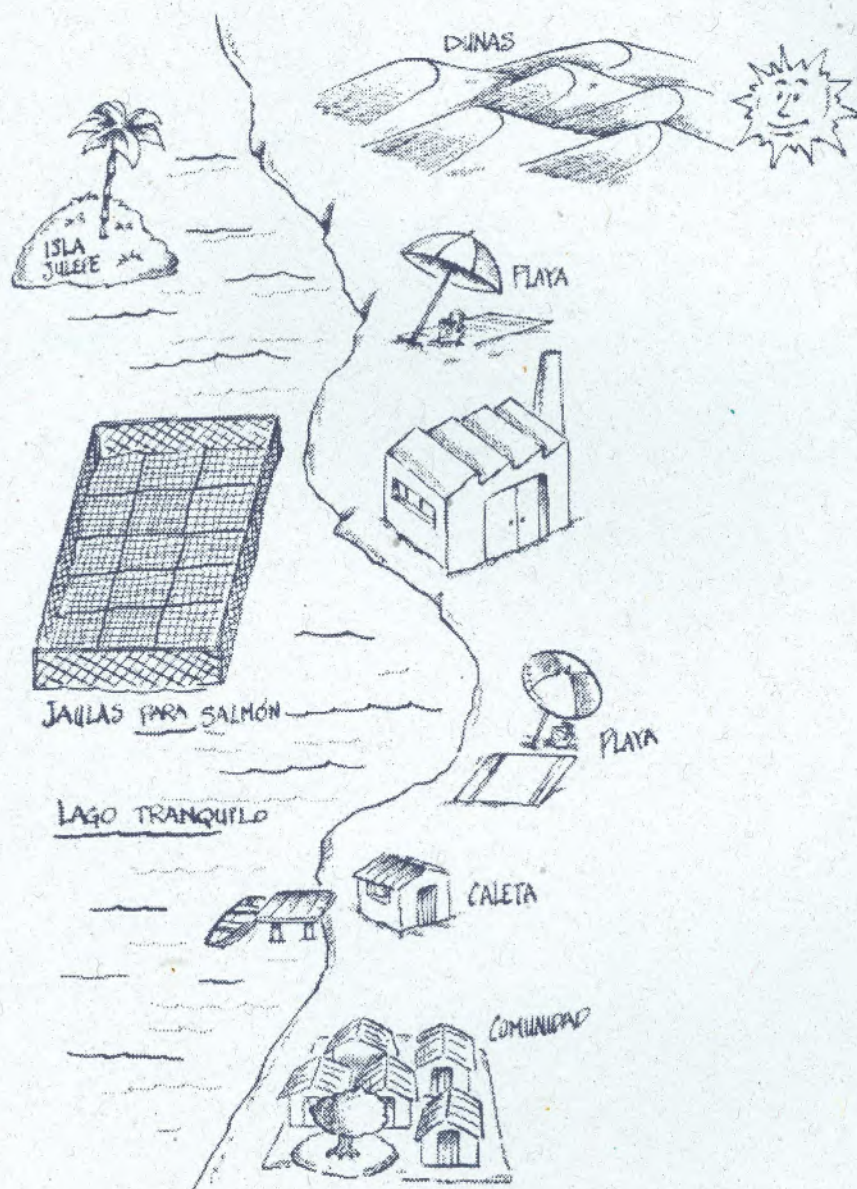 DUNAS
ISLA
JULEPE
PLAYA
JAULAS PARA SALMÓN
PLAYA
LAGO TRANQUILO
CALETA
COMUNIDAD